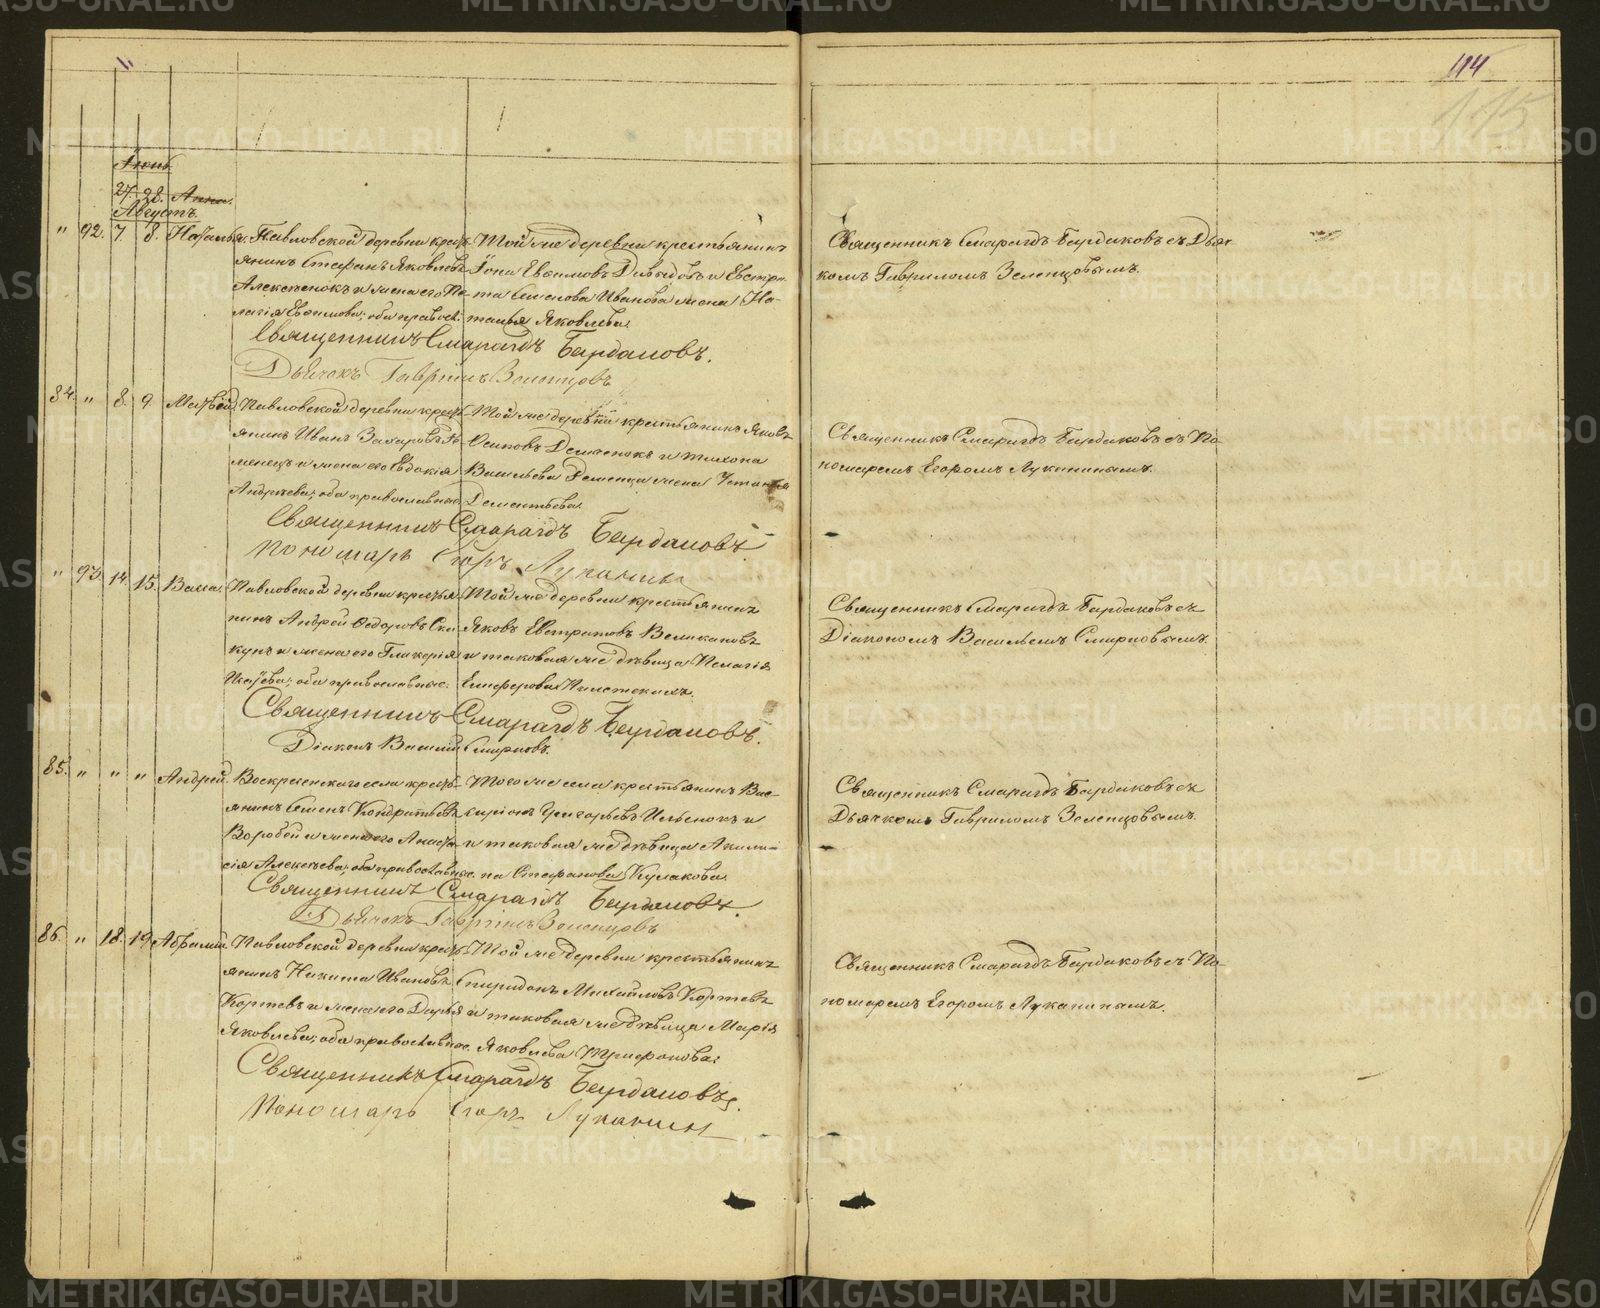 METRIKI.GASO-URAL.RU
114
115
Іюнь
27. 28. Анна.
Августъ.
" 92. 7. 8. Наталья.
Павловской деревни кресть-
янинъ Стефанъ Яковлевъ
Алексѣенокъ и жена его Пе-
лагія Евѳимова; оба правосл.
Той же деревни крестьянинъ
Іона Евѳимовъ Давыдовъ и Евстра-
та Семенова Иванова жена На-
талья Яковлева.
Священникъ Смарагдъ Бардаковъ.
Дьячекъ Гавріилъ Зеленцовъ
Священникъ Смарагдъ Бардаковъ съ Дьяч-
комъ Гавріиломъ Зеленцовымъ.
84. " 8. 9. Матѳей.
Павловской деревни кресть-
янинъ Иванъ Захаровъ
менецъ и жена его Евдокія
Андреева; оба православные
Той же деревни крестьянинъ Яковъ
Осиповъ и Тихона
Васильева жена Устинья
Дементьева.
Священникъ Смарагдъ Бардаковъ
Пономарь Егоръ Луканинъ
Священникъ Смарагдъ Бардаковъ съ По-
номаремъ Егоромъ Луканинымъ.
" 93. 14. 15. Васса.
Павловской деревни крестья-
нинъ Андрей Ѳедоровъ Ска-
кунъ и жена его Гликерія
оба православные.
Той же деревни крестьянинъ
Яковъ Евстратовъ Великановъ
и таковая же дѣвица Пелагія
Священникъ Смарагдъ Бардаковъ.
Діаконъ Василій Смирновъ.
Священникъ Смарагдъ Бардаковъ съ
Діакономъ Васильемъ Смирновымъ.
85. " " " Андрей.
Воскресенскаго села кресть-
янинъ Семенъ Кондратьевъ
Воробей и жена его Анаста-
сія Алексѣева; оба православные.
Того же села крестьянинъ Вас-
Григорьевъ Ильенокъ и
и таковая же дѣвица Акили-
на Стефанова Кулакова.
Священникъ Смарагдъ Бардаковъ.
Дьячекъ Гавріилъ Зеленцовъ
Священникъ Смарагдъ Бардаковъ съ
Дьячкомъ Гавріиломъ Зеленцовымъ.
86. " 18. 19. Абрамій.
Павловской деревни кресть-
янинъ Никита Ивановъ
Кортевъ и жена его Дарья
Яковлева; оба православные.
Той же деревни крестьянинъ
Спиридонъ Михайловъ Кортевъ
и таковая же дѣвица Марія
Яковлева Трифонова.
Священникъ Смарагдъ Бардаковъ.
Пономарь Егоръ Луканинъ
Священникъ Смарагдъ Бардаковъ съ По-
номаремъ Егоромъ Луканинымъ.